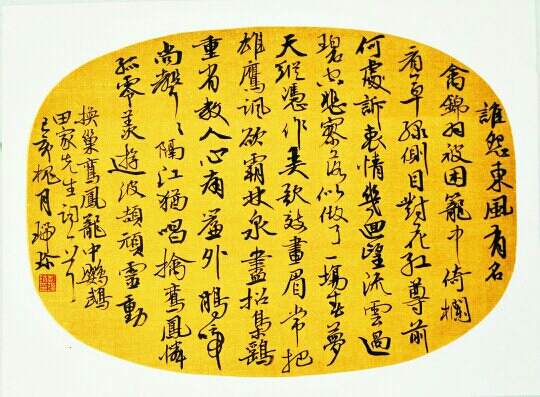 誰怨東風有名
禽錦羽被困籠中倚欄
看草綠側目對花紅尊前
何處訴衷情幾回望流雲過
碧空悲寥落似做了一場春夢
天縱憑作美歌效畫眉常把
雄鷹諷欲霸林泉盡招集鷄
重省教人心痛簾外鵑啼
尚聲々隔江猶唱擒鸞鳳憐
孤零羨遊波頡頏靈動
換巢鸞鳳籠中鸚鵡
田家先生詞一首
己亥桃月